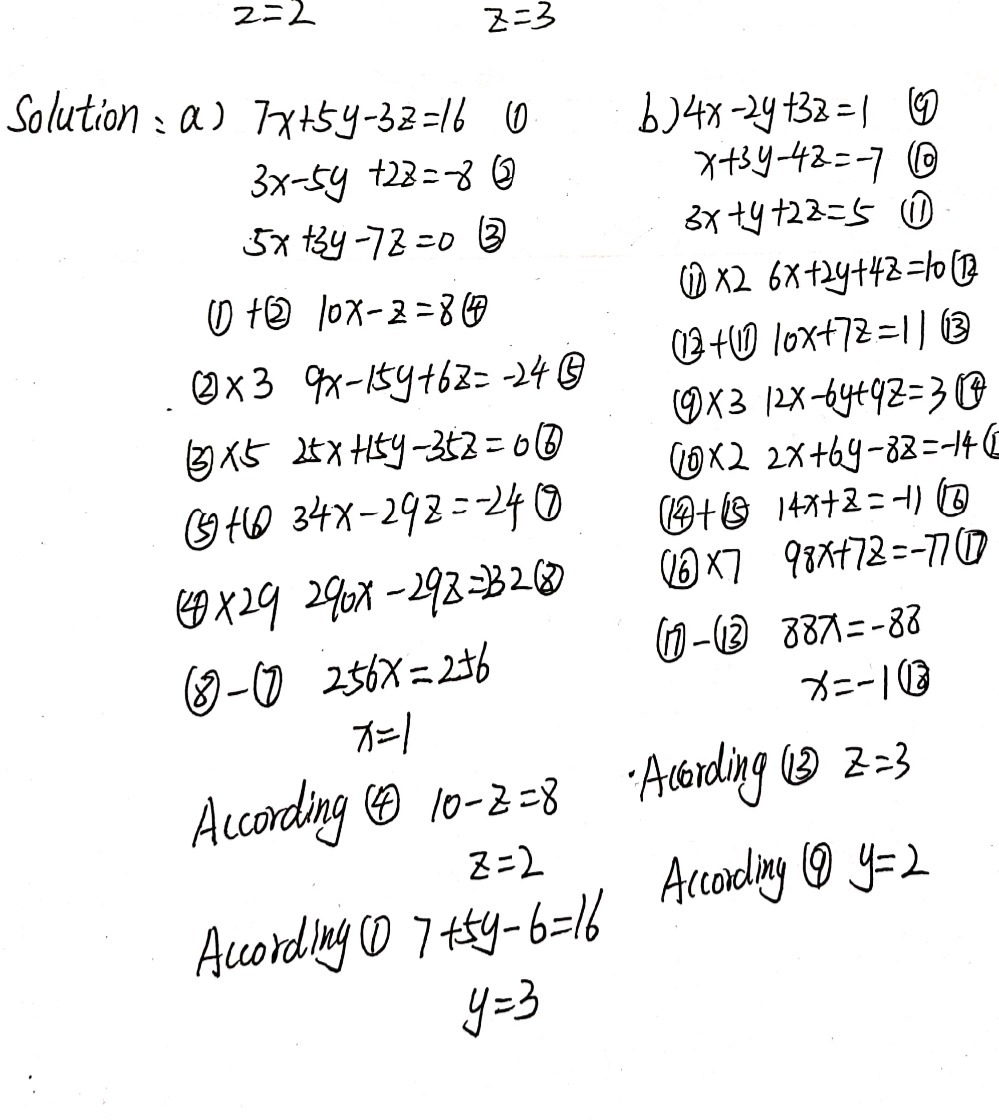 z=2
z=3
Solution: a) 7x+5y-3z=16 ①
3x-5y+2z=-8 ②
5x+3y-7z=0 ③
①+② 10x-z=8 ④
②×3 9x-15y+6z=-24 ⑤
③×5 25x+15y-35z=0 ⑥
⑤+⑥ 34x-29z=-24 ⑦
④×29 290x-29z=232 ⑧
⑧-⑦ 256x=256
x=1
According ④ 10-z=8
z=2
According ① 7+5y-6=16
y=3
b) 4x-2y+3z=1 ⑨
x+3y-4z=-7 ⑩
3x+y+2z=5 ⑪
⑪×2 6x+2y+4z=10 ⑫
⑫+⑪ 10x+7z=11 ⑬
⑨×3 12x-6y+9z=3 ⑭
⑩×2 2x+6y-8z=-14
⑭+⑮ 14x+z=-11 ⑯
⑯×7 98x+7z=-77 ⑰
⑰-⑬ 88x=-88
x=-1 ⑱
Acording ⑬ z=3
According ⑨ y=2